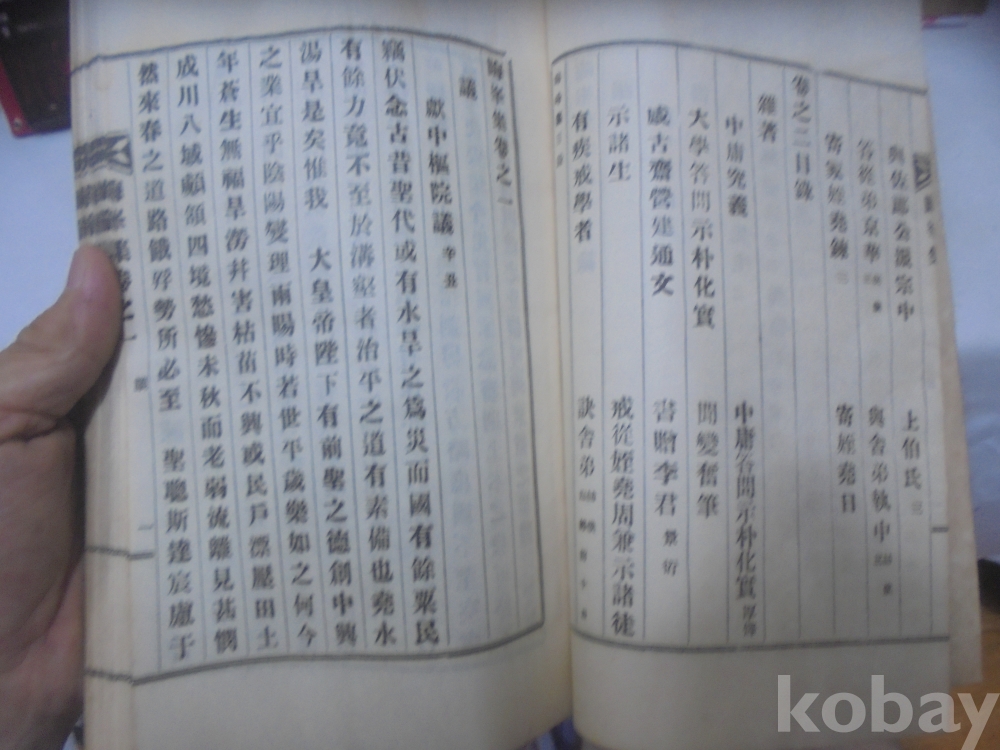 與佐郎公龍宗中
上伯氏
答從弟京華
與舍弟執中
寄宛姪堯鍊
寄姪堯日
卷之二目錄
雜著
中庸究義
中庸答問示朴化實
大學答問示朴化實
聞變奮筆
咸古齋營建通文
書贈李君
示諸生
戒從姪堯周兼示諸徒
有疾戒學者
訣舍弟
集卷之一
議
獻中樞院議 辛丑
竊伏念古昔聖代或有水旱之爲災而國有餘粟民
有餘力竟不至於溝壑者治平之道有素備也堯水
湯旱是矣惟我 大皇帝陛下有前聖之德創中興
之業宜乎陰陽變理雨暘時若世平歲樂如之何今
年蒼生無福旱澇幷害枯苗不興或民戶漂壓田土
成川八域顑頷四境愁慘未秋而老弱流離見甚憫
然來春之道路餓殍勢所必至 聖聰斯達宸慮于
集卷之一
kobay